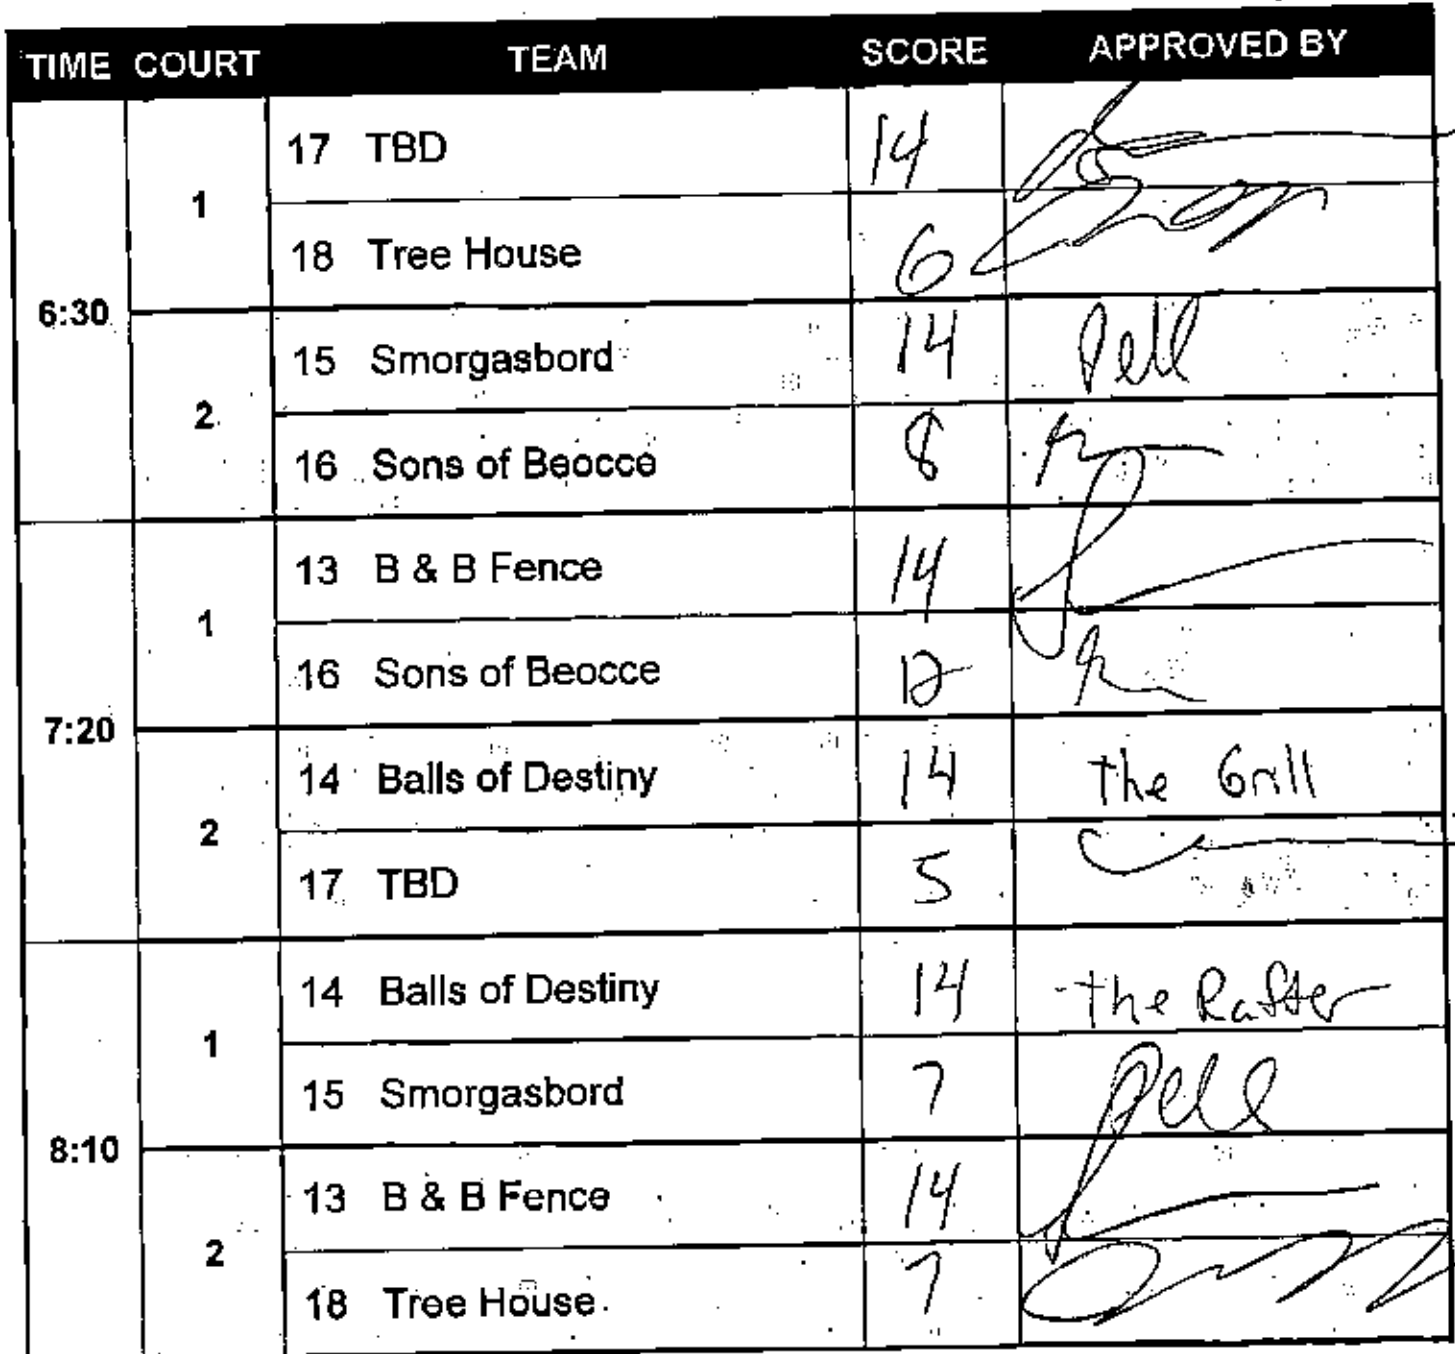 TIME COURT TEAM SCORE APPROVED BY
6:30 1 17 TBD 14
18 Tree House 6
2 15 Smorgasbord 14 Pell
16 Sons of Beocce 8
7:20 1 13 B & B Fence 14
16 Sons of Beocce 12
2 14 Balls of Destiny 14 The Grill
17 TBD 5
8:10 1 14 Balls of Destiny 14 The Rafter
15 Smorgasbord 7 Pell
2 13 B & B Fence 14
18 Tree House 7